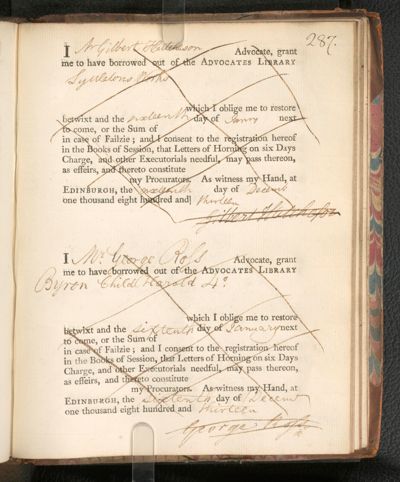 287.
I Mr Gilbert Hutcheson Advocate, grant
me to have borrowed out of the ADVOCATES LIBRARY
Lyttletons Works
which I oblige me to restore
betwixt and the sixteenth day of Janry next
to come, or the Sum of
in case of Failzie; and I consent to the registration hereof
in the Books of Session, that Letters of Horning on six Days
Charge, and other Executorials needful, may pass thereon,
as effeirs, and thereto constitute
my Procurators. As witness my Hand, at
EDINBURGH, the sixteenth day of Decemr
one thousand eight hundred and thirteen
Gilbert Hutcheson
I Mr. George Ross Advocate, grant
me to have borrowed out of the ADVOCATES LIBRARY
Byron Childe Harold 4o.
which I oblige me to restore
betwixt and the sixteenth day of January next
to come, or the Sum of
in case of Failzie; and I consent to the registration hereof
in the Books of Session, that Letters of Horning on six Days
Charge, and other Executorials needful, may pass thereon,
as effeirs, and thereto constitute
my Procurators. As witness my Hand, at
EDINBURGH, the sixteenth day of Decemr
one thousand eight hundred and thirteen
George Ross